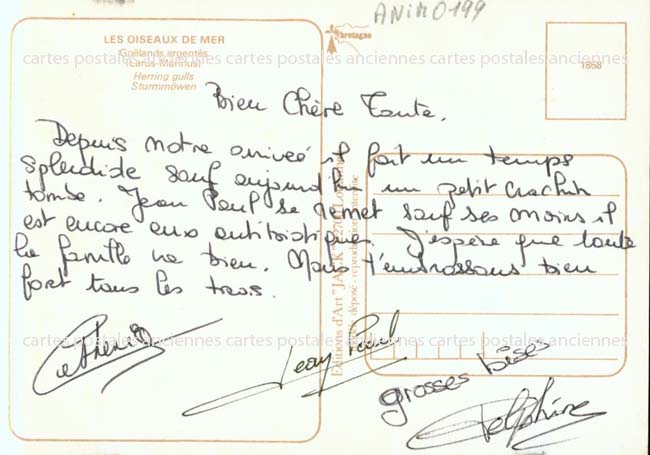 ANIM0199
LES OISEAUX DE MER
Goëlands argentés
(Larus-Marinus)
Herring gulls
Sturmmöwen
bretagne
1858
cartes postales anciennes cartes postales anciennes cartes postales anciennes
Bien Chère Tante,
Depuis notre arrivée il fait un temps
splendide sauf aujourd'hui un petit crachin
tombe. Jean Paul se remet sauf ses mains il
est encore aux antibiotiques. J'espère que toute
la famille va bien. Nous t'embrassons bien
fort tous les trois.
Editions d'Art "JACK"
déposé - reproduction interdite
cartes postales anciennes cartes postales anciennes cartes postales anciennes
Jean Paul
grosses bises
Delphine